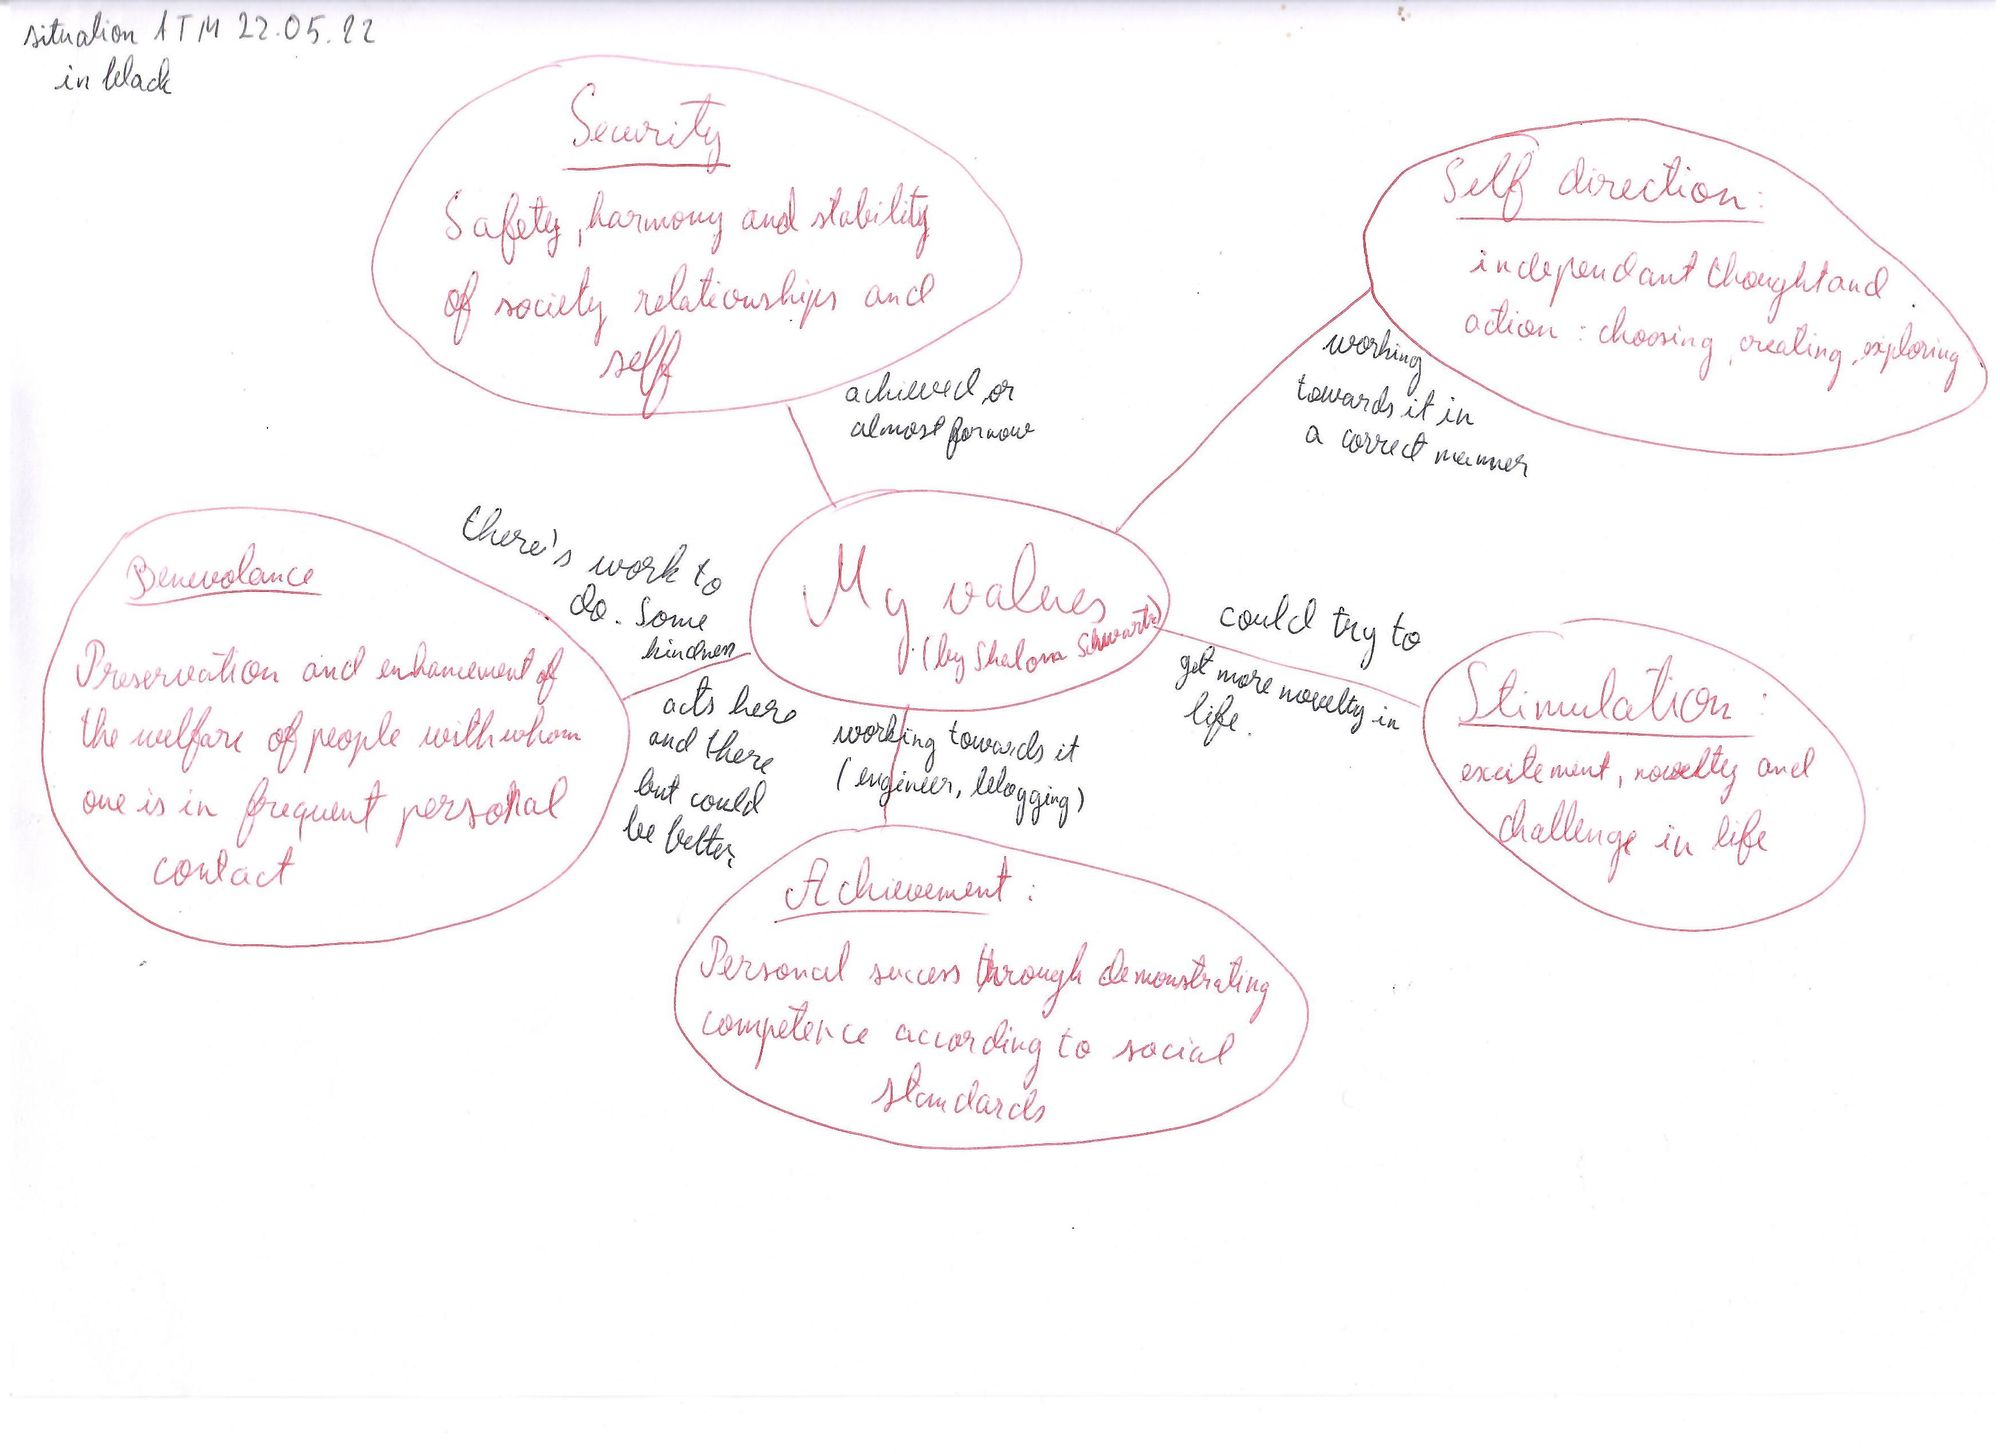 situation ATM 22.05.22
in black
Security
Safety, harmony and stability
of society relationships and
self
achieved or
almost for now
Self direction:
independant thought and
action: choosing, creating, exploring
working
towards it in
a correct manner
My values
(by Shalom Schwartz)
there's work to
do. Some
kindness
acts here
and there
but could
be better.
Benevolance
Preservation and enhancement of
the welfare of people with whom
one is in frequent personal
contact
could try to
get more novelty in
life.
Stimulation:
excitement, novelty and
challenge in life
working towards it
(engineer, blogging)
Achievement:
Personal success through demonstrating
competence according to social
standards